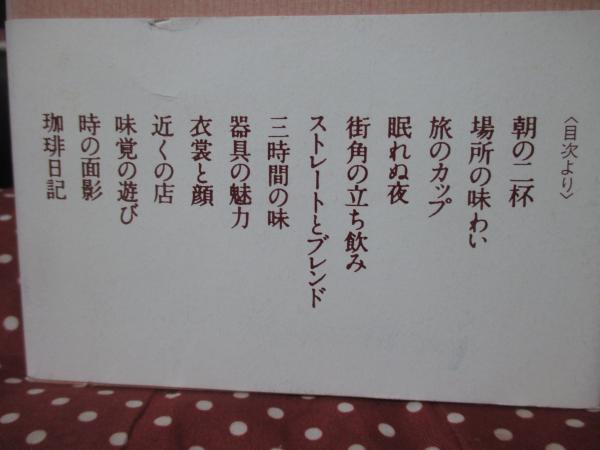 〈目次より〉
朝の二杯
場所の味わい
旅のカップ
眠れぬ夜
街角の立ち飲み
ストレートとブレンド
三時間の味
器具の魅力
衣裳と顔
近くの店
味覚の遊び
時の面影
珈琲日記